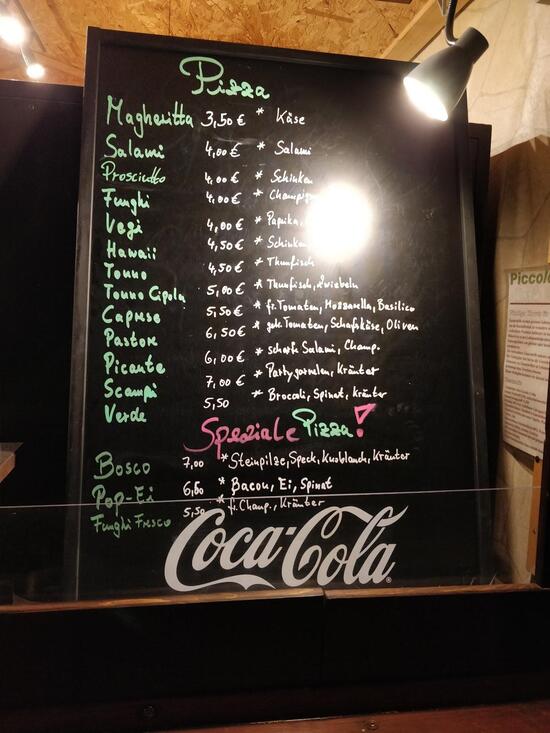 Pizza
Magheritta 3,50 € * Käse
Salami 4,00 € * Salami
Prosciutto 4,00 € * Schinken
Funghi 4,00 €
Vegi 4,00 € * Paprika,
Hawaii 4,50 € * Schinken
Tonno 4,50 € * Thunfisch
Tonno Cipola 5,00 € * Thunfisch, Zwiebeln
Caprese 5,50 € * fr. Tomaten, Mozzarella, Basilico
Pastore 6,50 € * getr. Tomaten, Schafskäse, Oliven
Picante 6,00 € * scharfe Salami, Champ.
Scampi 7,00 € * Partygarnelen, Kräuter
Verde 5,50 * Broccoli, Spinat, Kräuter
Speziale Pizza!
Bosco 7,00 * Steinpilze, Speck, Knoblauch, Kräuter
Pop-Ei 6,50 * Bacon, Ei, Spinat
Funghi Fresco 5,50 * fr. Champ., Kräuter
Coca-Cola